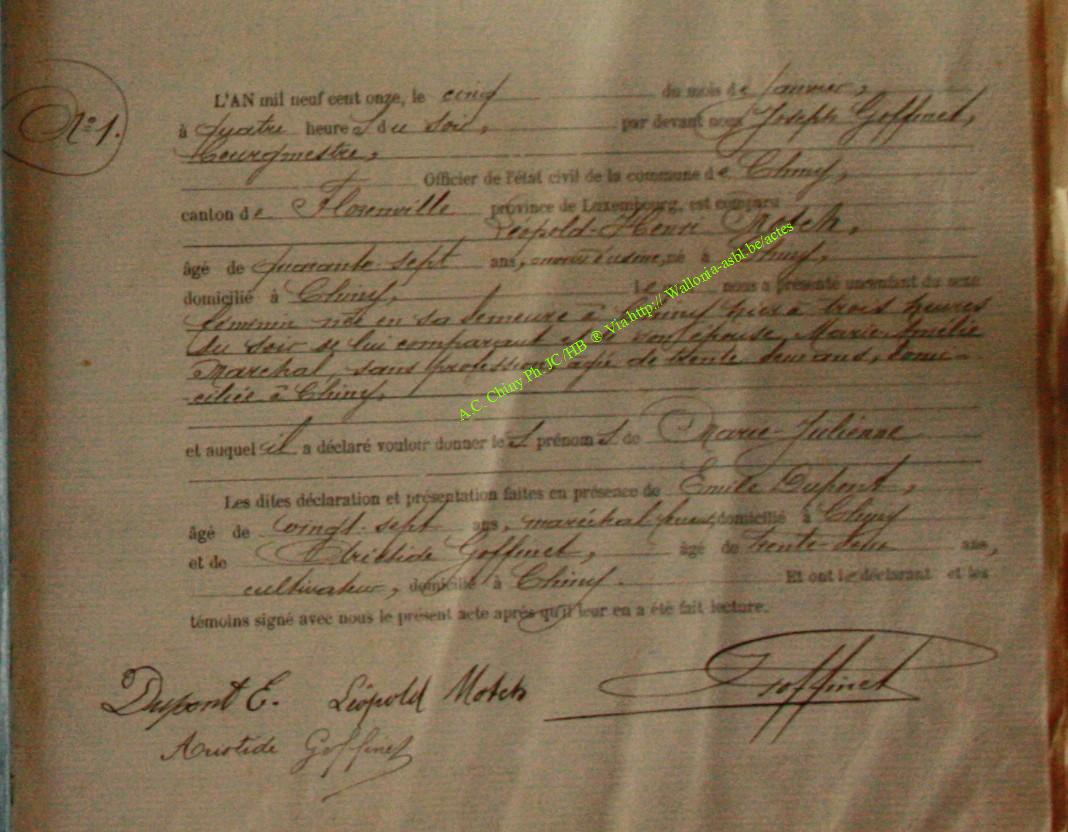 N° 1.
L'AN mil neuf cent onze, le cinq du mois de Janvier,
à quatre heures du soir, par devant nous Joseph Goffinet,
Bourgmestre,
Officier de l'état civil de la commune de Chiny,
canton de Florenville province de Luxembourg, est comparu
Léopold-Henri Motch,
âgé de quarante-sept ans, né à Chiny,
domicilié à Chiny, Lequel nous a présenté un enfant du sexe
féminin née en sa demeure à Chiny hier à trois heures
du soir de lui comparant et de son épouse, Marie-Amélie
Marchal, sans profession, agée de trente deux ans, domi-
ciliée à Chiny,
et auquel il a déclaré vouloir donner les prénoms de Marie-Julienne
Les dites déclaration et présentation faites en présence de Emile Dupont,
âgé de vingt-sept ans, maréchal ferrant, domicilié à Chiny
et de Aristide Goffinet, âgé de trente-deux ans,
cultivateur, domicilié à Chiny. Et ont le déclarant et les
témoins signé avec nous le présent acte après qu'il leur en a été fait lecture.
Dupont E. Léopold Motch J Goffinet
Aristide Goffinet
A.C. Chiny Ph. JC/HB ® Via http:// Wallonia-asbl.be/actes